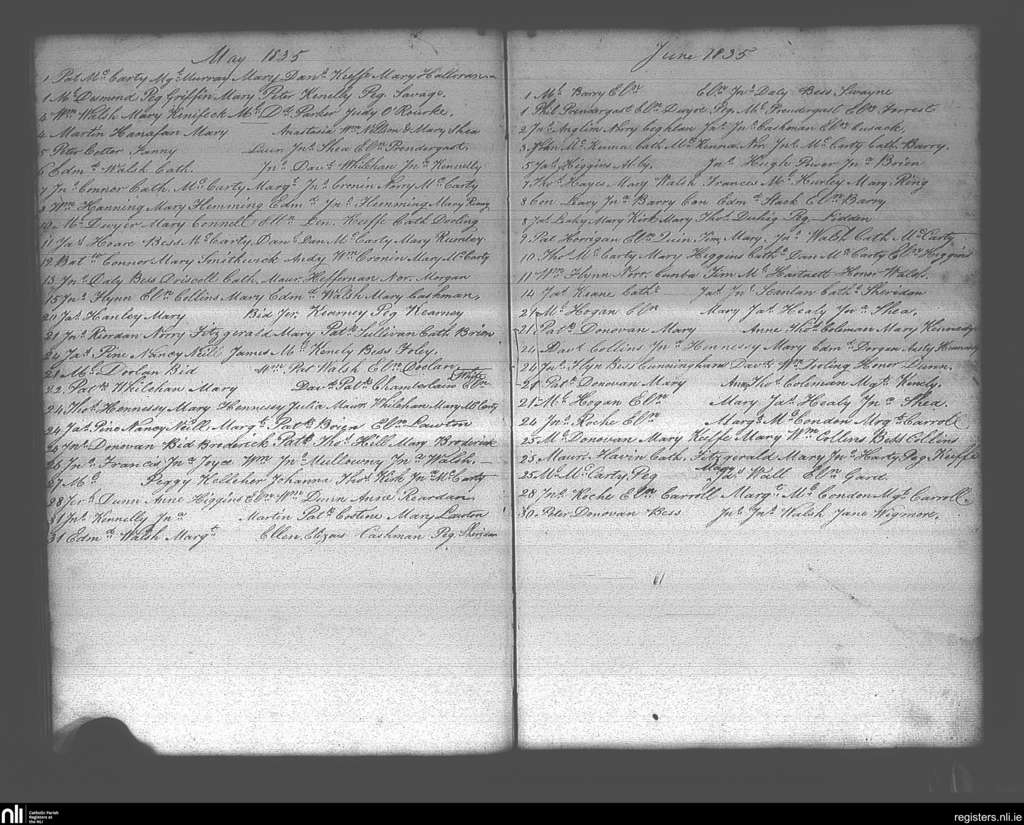 May 1835
1 Pat Mc Carty Mgt Murray Mary Danl Keeffe Mary Halloran
1 Ml Desmond Peg Griffin Mary Peter Kenelly Peg Savage.
3 Wm Walsh Mary Kenifeck Ml Dd Parker Judy O'Rourke.
4 Martin Hanafan Mary Anastasia Wm & Mary Shea
5 Peter Cotter Fanny Jns Shea Ellen Pendergast
6 Edmd Walsh Cath. Jns Davd Whilehan Jna Kennelly
7 Jns Connor Cath Mc Carty Margt Jns Cronin Nory Mc Carty
Wm Hanning Mary Flemming Edmd Jns Flemming Mary
10 Ml Dwyer Mary Connell Con. Keeffe Cath Dorling
11 Jas Hoare Bess Mc Carty Davd Dan Mc Carty Mary Kiersey
12 Batt Connor Mary Smithwick Andy Wm Cronin Mary Mc Carty
13 Jns Daly Bess Driscoll Cath. Maur. Heffernan Nor. Morgan
15 Jns Flynn Elln Collins Mary Edmd Walsh Mary Cashman,
20 Jas Hanley Mary Bid Jer. Kearney Peg Kearney
21 Jns Riordan Norry Fitzgerald Mary Patk Sullivan Cath Brien
24 Jas Pine Nancy Neill James Ml Kenely Bess Foley.
21 Ml Doolan Bid Pat Walsh Elln Doolan
22 Patk Whilehan Mary Davd Patk Chamberlain Elln
24 Thos Hennessy Mary Hennessy Julia Maur. Whilehan Mary Mc Carty
24 Jas Pine Nancy Neill Margt Patk Brien Elln Lawton
24 Jns Donovan Bid Broderick Patk Thos Hill Mary Broderick
26 Jns Francis Jna Joyce Wm Jns Mullowny Jna Walsh.
27 Ml Peggy Kelleher Johanna Thos Kirk Jna Mc Carty
28 Jerh Dunn Anne Higgins Elln Wm Dunn Anne Reardan
31 Jns Kennelly Jna Martin Patk Costine Mary Lawton
31 Edmd Walsh Margt Ellen Cashman Peg Sheridan
June 1835
1 Ml Barry Elln Elln Jns Daly Bess Swayne
1 Phil Prendergast Elln Dwyre Peg Ml Prendergast Elln Forrest
2 Jns Anglin Nory Coghlan Jas Jns Cashman Elln Cusack.
3 Mc Kenna Cath Mc Kenna Nor. Jns Mc Carty Cath Barry.
5 Jas Higgins Alby. Jns Hugh Power Jna Brien
7 Thos Hayes Mary Walsh Frances Ml Hurley Mary Ring
8 Con Leary Jna Barry Con Edmd Stack Elln Barry
8 Jas Leahy Mary Kirk Mary Thos Duhig Peg
9 Pat Horrigan Elln Quin Tim Mary, Jns Walsh Cath Mc Carty
10 Thos Mc Carty Mary Higgins Cath Dan Mc Carty Elln Higgins
11 Wm Flynn Norr. Tim Ml Hartnett Honor Walsh.
14 Jas Keane Cath Jas Jns Hanlan Cath Sheridan
21 Ml Hogan Elln Mary Jas Healy Jna Shea.
21 Patk Donovan Mary Anne Thos Colman Mary Kennedy
24 Davd Collins Jna Hennessy Mary Edmd Dorgan Hennessy
24 Jns Flyn Bess Cunningham Davd Wm Dooling Honor Dunn.
21 Patk Donovan Mary Ann Thos Coleman Mgt Kinely.
21 Ml Hogan Elln Mary Jas Healy Jna Shea.
24 Jns Roche Elln Margt Ml Condon Mrgt Carroll
25 Ml Donovan Mary Keeffe Mary Wm Collins Bess Collins
25 Maur. Havin Cath. Fitzgerald Mary Jns Harty Peg Keeffe
25 Ml Mc Carty, Peg Mary Jas Wall Elln Gard.
28 Jns Roche Elln Carroll Margt Ml Condon Mgt Carroll
30 Peter Donovan Bess Jns Jns Walsh Jane Wigmore.
nli
Catholic Parish
Registers at
the NLI
registers.nli.ie